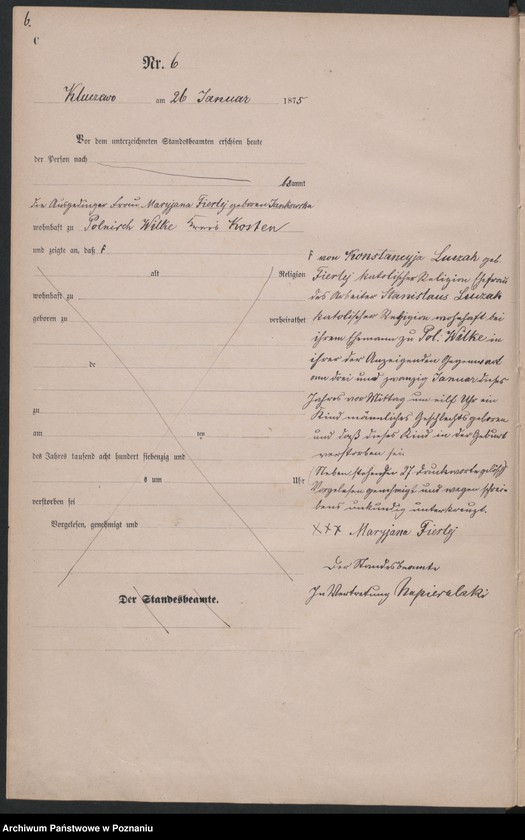 6.
C
Nr. 6
Kluczewo am 26 Januar 1875
Vor dem unterzeichneten Standesbeamten erschien heute
der Person nach
kannt
die Ausgedinger Frau Maryjana Fierlej geboren
wohnhaft zu Polnisch Wilke Kreis Kosten
und zeigte an, daß
alt Religion
wohnhaft zu
geboren zu verheirathet
de
zu
am ten
des Jahres tausend acht hundert siebenzig und
s um Uhr
verstorben sei
Vorgelesen, genehmigt und
Der Standesbeamte.
von Konstancyja Luczak geb.
Fierlej katolischer Religion Ehefrau
des Arbeiter Stanislaus Luczak
katolischer Religion wohnhaft bei
ihrem Ehemann zu Pol. Wilke in
ihrer der Anzeigenden Gegenwart
am drei und zwanzig Januar dieses
Jahres vor Mittag um eilf Uhr ein
Kind männliches Geschlechts geboren
und daß dieses Kind in der Geburt
verstorben sei.
Neben stehender 27 Druckworte gelöscht
Vorgelesen genehmigt und wegen schrei-
bens unkundig unterkreuzt.
+++ Maryjana Fierlej
Der Standesbeamte
In Vertretung Napieralski
Archiwum Państwowe w Poznaniu